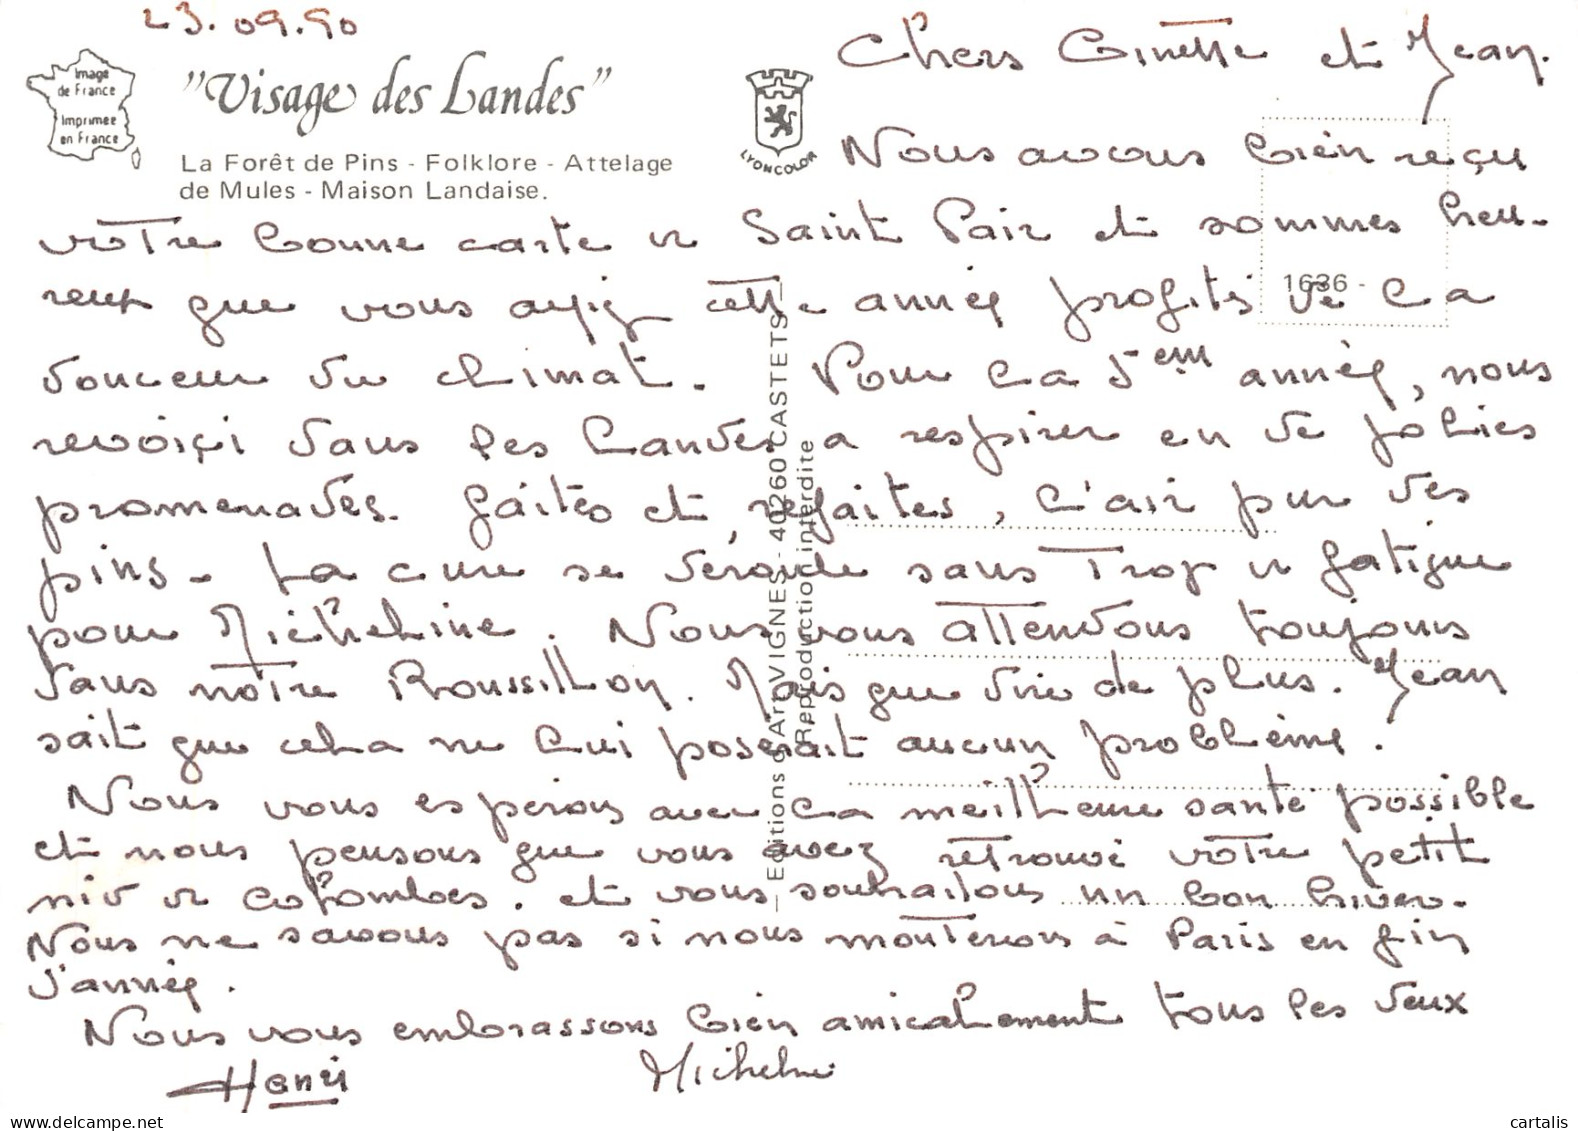 23.09.90
Image
de France
Imprimée
en France
"Visage des Landes"
La Forêt de Pins - Folklore - Attelage
de Mules - Maison Landaise.
LYONCOLOR
1636 -
Editions d'Art VIGNES - 40260 CASTETS
Reproduction interdite
Chers Ginette et Jean.
Nous avons bien reçu
votre bonne carte de Saint Pair et sommes heu-
reux que vous ayiez cette année profités de la
douceur du climat. Pour la 5em année, nous
revoiçi dans les Landes a respirer en de jolies
promenades. faites et refaites, l'air pur des
pins - La cure se déroule sans trop de fatigue
pour Micheline. Nous vous attendons toujours
dans notre Roussillon. Mais que dire de plus. Jean
sait que cela ne lui poserait aucun problème.
Nous vous espérons avec la meilleure santé possible
et nous pensons que vous avez retrouvé votre petit
nid de colombes. et vous souhaitons un bon hiver.
Nous ne savons pas si nous monterons à Paris en fin
d'année.
Nous vous embrassons bien amicalement tous les deux
Henri Micheline
delcampe.net
cartalis